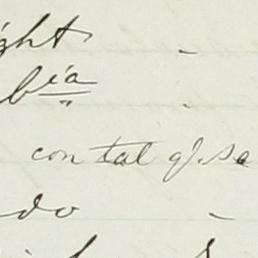 ight -
bia " -
con tal q. se
do -